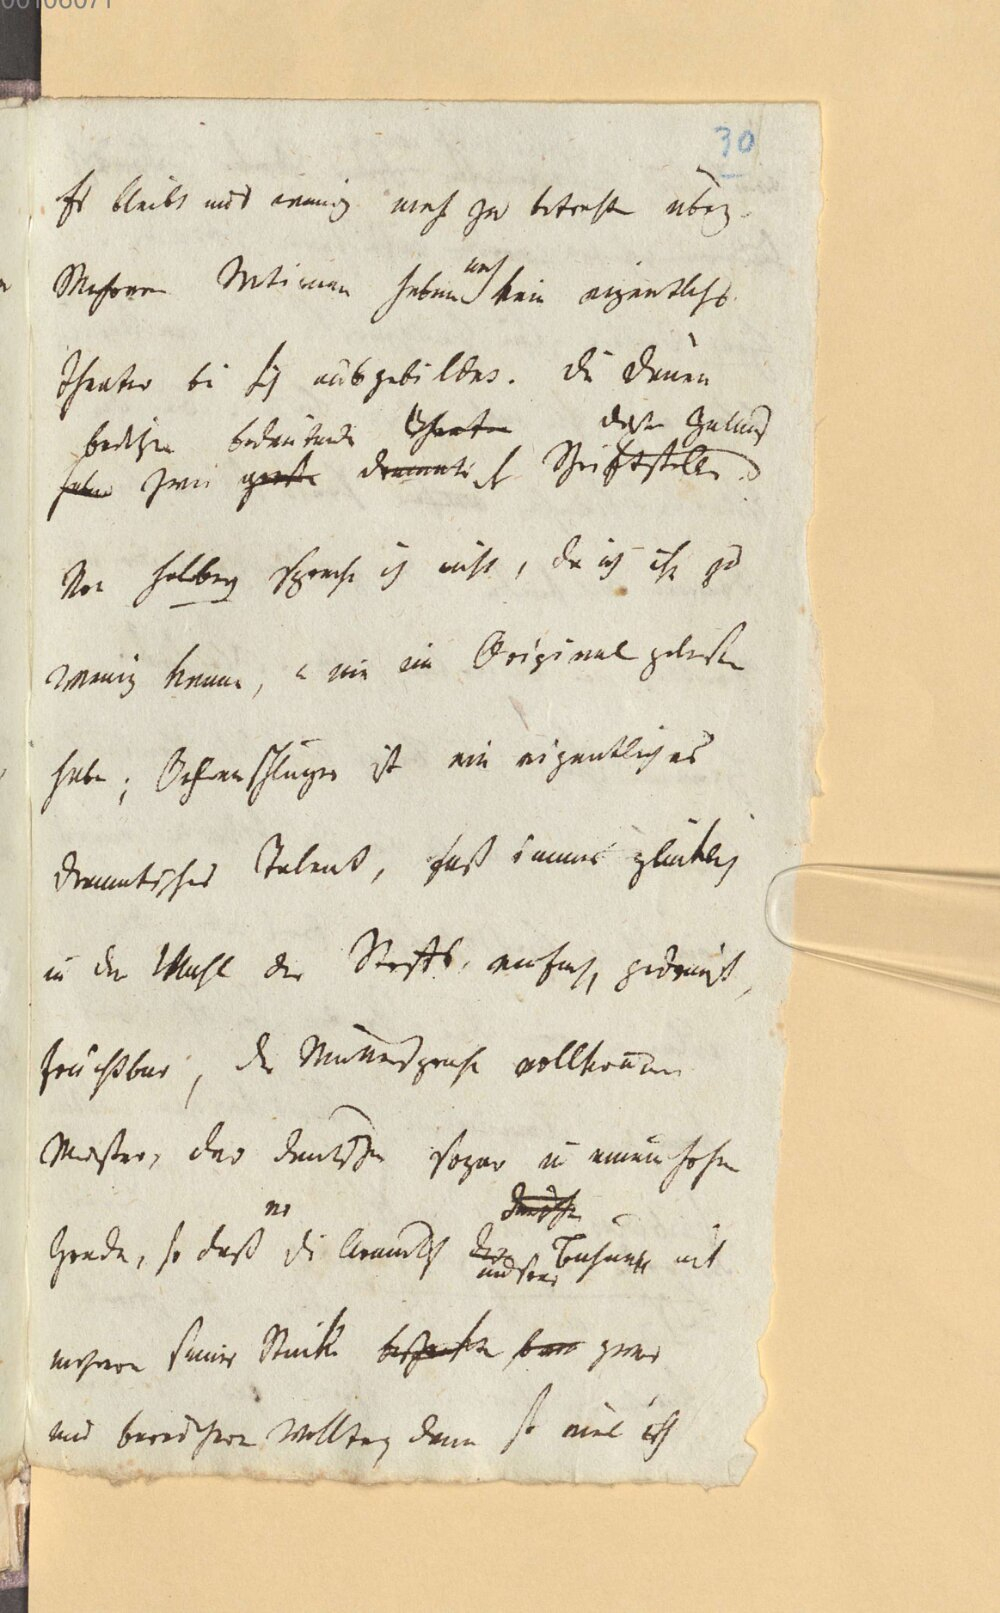 00106071
30
Es bleibt uns wenig mehr zu betrachten übrig.
Mehrere Nationen haben noch kein eigentliches
Theater bei sich ausgebildet. Die Dänen
besitzen bedeutende Theater
haben zwei große dramatische Schriftsteller.
Von Holberg spreche ich nicht, da ich ihn zu
wenig kenne, u nie im Original gelesen
habe; Oehlenschläger ist ein eigentliches
dramatisches Talent, fast immer glücklich
in der Wahl der Stoffe, einfach, gedrängt,
fruchtbar, der Muttersprache vollkommen
Meister, der deutschen sogar in einem hohen
deutschen
Grade, so daß er die Armuth der unsrer Bühnen mit
mehrere seiner Stücke
uns bereichern wollten, denn so viel ich